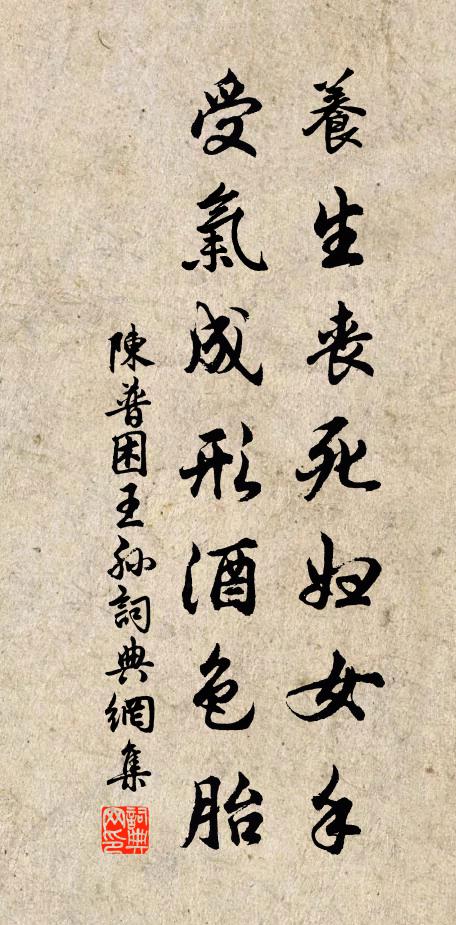 養生喪死婦女手
受氣成形酒色胎
陳普困王孫詞典網集
詞典网印